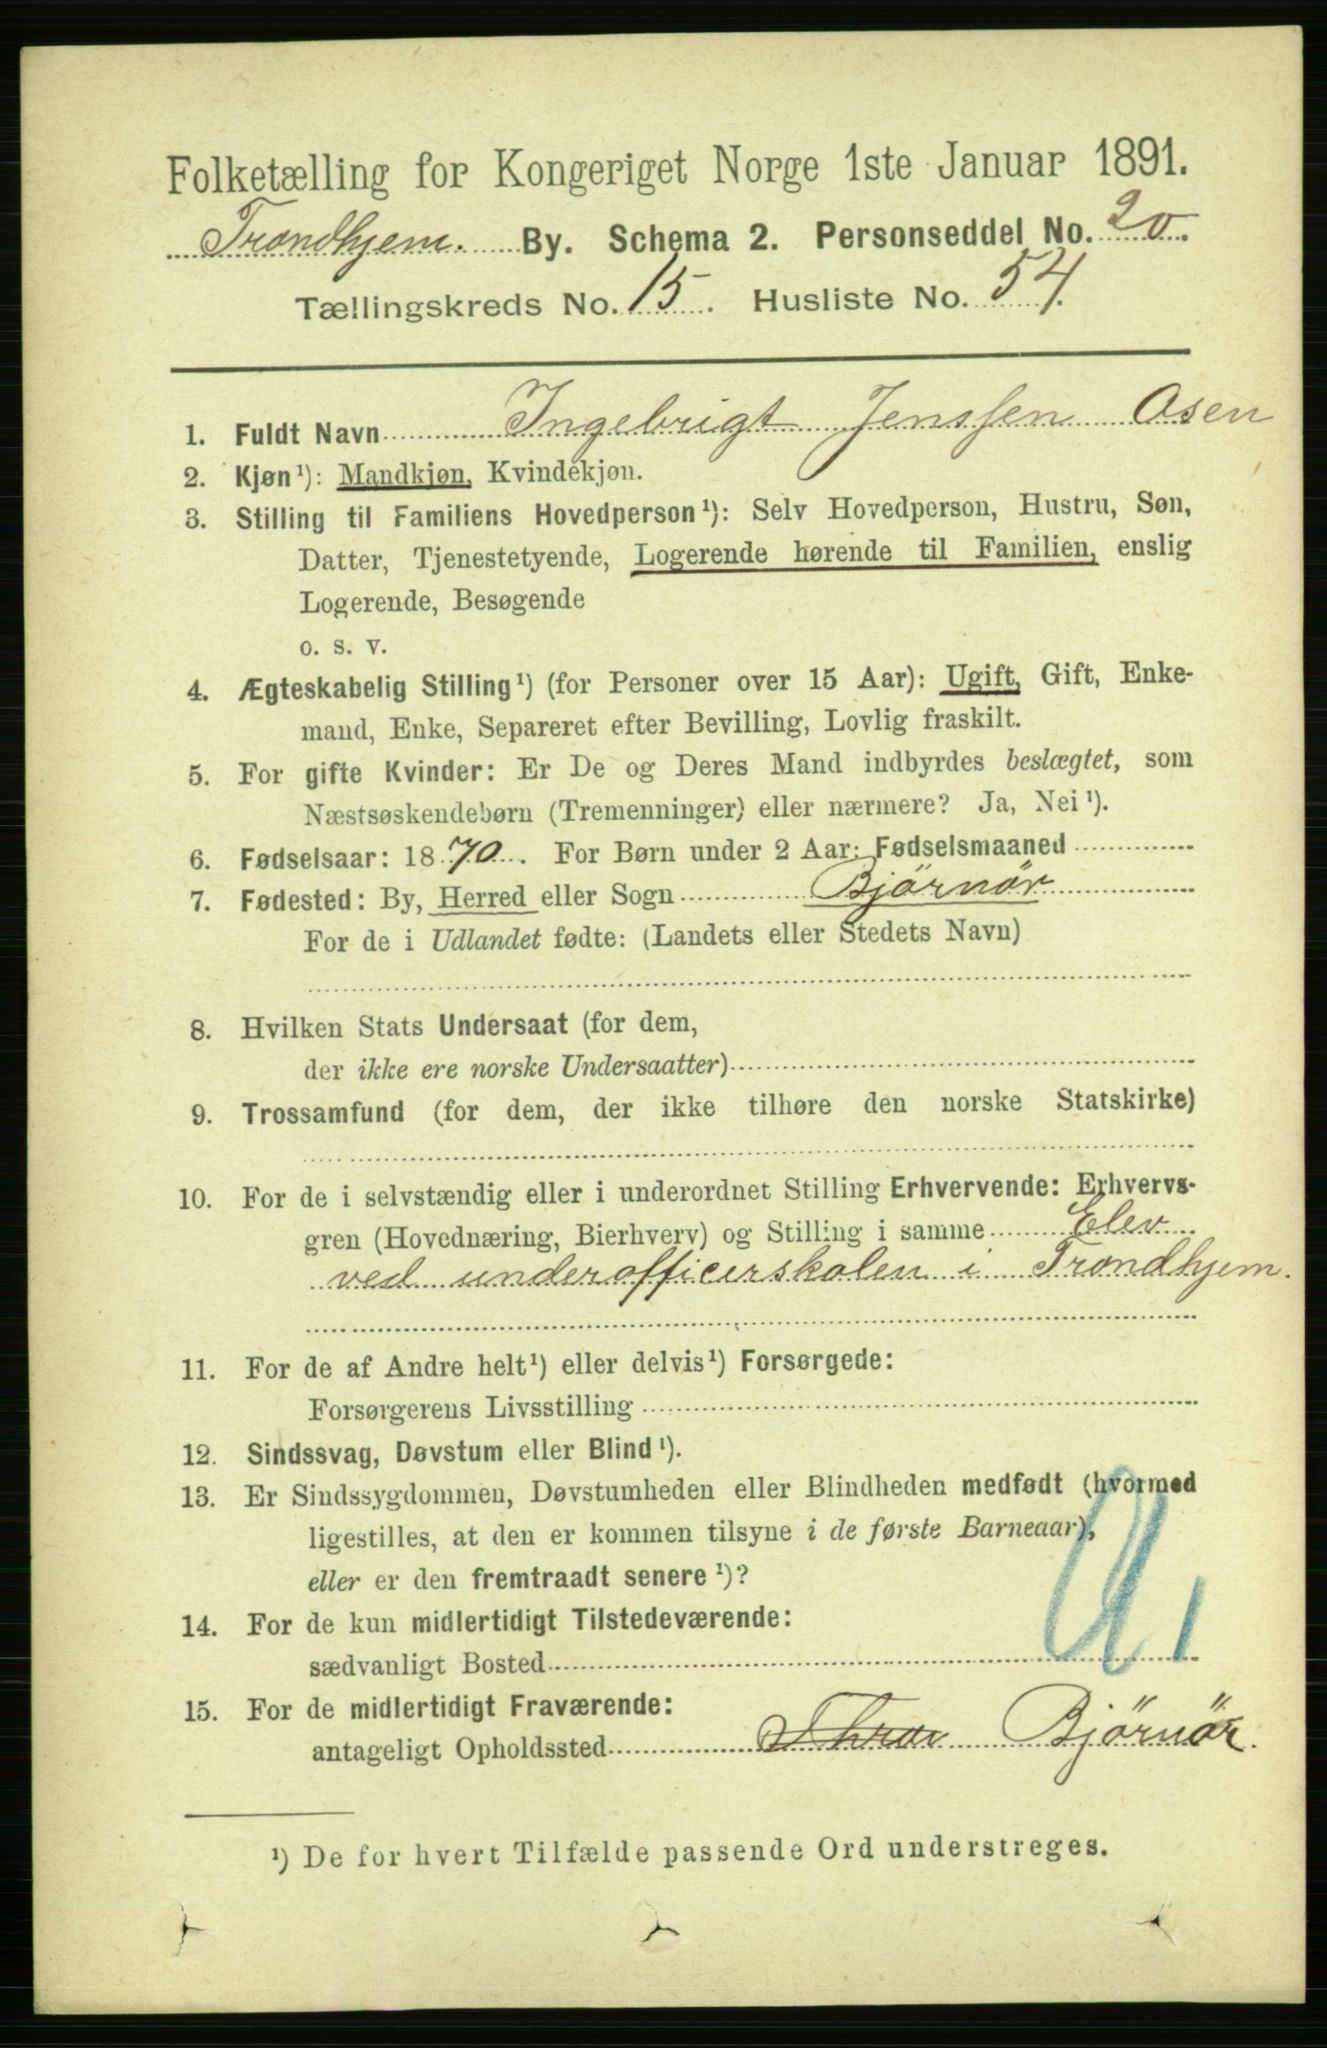 Folketælling for Kongeriget Norge 1ste Januar 1891.
Trondhjem. By. Schema 2. Personseddel No. 20.
Tællingskreds No. 15. Husliste No. 54.
1. Fuldt Navn Ingebrigt Jenssen Osen
2. Kjøn¹): Mandkjøn, Kvindekjøn.
3. Stilling til Familiens Hovedperson¹): Selv Hovedperson, Hustru, Søn,
Datter, Tjenestetyende, Logerende hørende til Familien, enslig
Logerende, Besøgende
o. s. v.
4. Ægteskabelig Stilling¹) (for Personer over 15 Aar): Ugift, Gift, Enke-
mand, Enke, Separeret efter Bevilling, Lovlig fraskilt.
5. For gifte Kvinder: Er De og Deres Mand indbyrdes beslægtet, som
Næstsøskendebørn (Tremenninger) eller nærmere? Ja, Nei¹).
6. Fødselsaar: 1870. For Børn under 2 Aar: Fødselsmaaned
7. Fødested: By, Herred eller Sogn Björnör
For de i Udlandet fødte: (Landets eller Stedets Navn)
8. Hvilken Stats Undersaat (for dem,
der ikke ere norske Undersaatter)
9. Trossamfund (for dem, der ikke tilhøre den norske Statskirke)
10. For de i selvstændig eller i underordnet Stilling Erhvervende: Erhvervs-
gren (Hovednæring, Bierhverv) og Stilling i samme Elev
ved underofficerskolen i Trondhjem.
11. For de af Andre helt¹) eller delvis¹) Forsørgede:
Forsørgerens Livsstilling
12. Sindssvag, Døvstum eller Blind¹).
13. Er Sindssygdommen, Døvstumheden eller Blindheden medfødt (hvormed
ligestilles, at den er kommen tilsyne i de første Barneaar),
eller er den fremtraadt senere¹)?
14. For de kun midlertidigt Tilstedeværende:
sædvanligt Bosted
15. For de midlertidigt Fraværende:
antageligt Opholdssted Björnör.
¹) De for hvert Tilfælde passende Ord understreges.